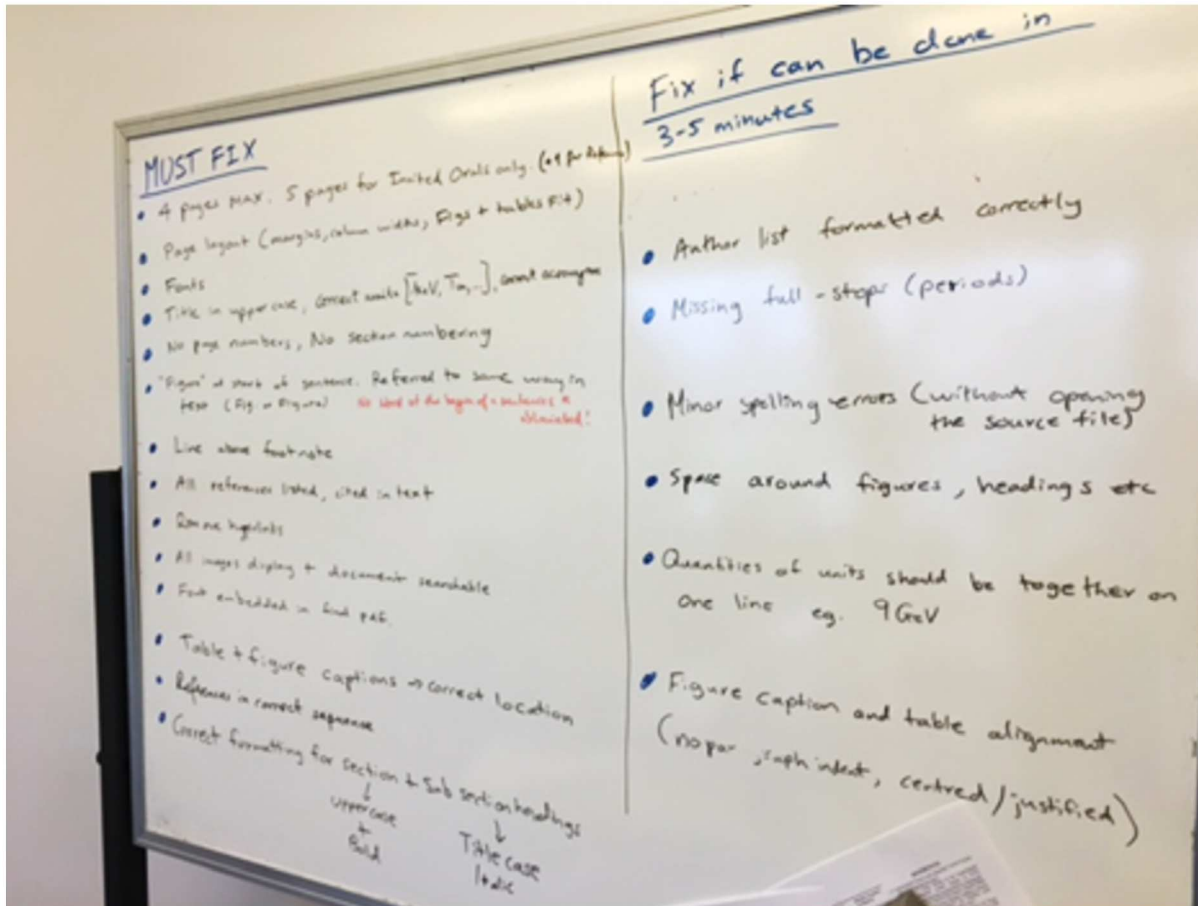 MUST FIX
• 4 pages MAX. 5 pages for Invited Orals only.
• Page layout (margins, column widths, Figs + tables Fit)
• Fonts
• Title in uppercase, correct units [GeV, Tm,...], correct acronyms
• No page numbers, No section numbering
• "Figure" at start of sentence. Referred to same way in
text (Fig. or Figure) No word at the begin of a sentences is
abbreviated!
• Line above footnote
• All references listed, cited in text
• Remove hyperlinks
• All images display + document searchable
• Font embedded in final pdf.
• Table + figure captions → correct location
• References in correct sequence
• Correct formatting for section + Sub section headings
↓ ↓
Uppercase Title case
+ Italic
Bold
Fix if can be done in
3-5 minutes
• Author list formatted correctly
• Missing full-stops (periods)
• Minor spelling errors (without opening
the source file)
• Space around figures, headings etc
• Quantities of units should be together on
one line eg. 9 GeV
• Figure caption and table alignment
(no par raph indent, centred/justified)